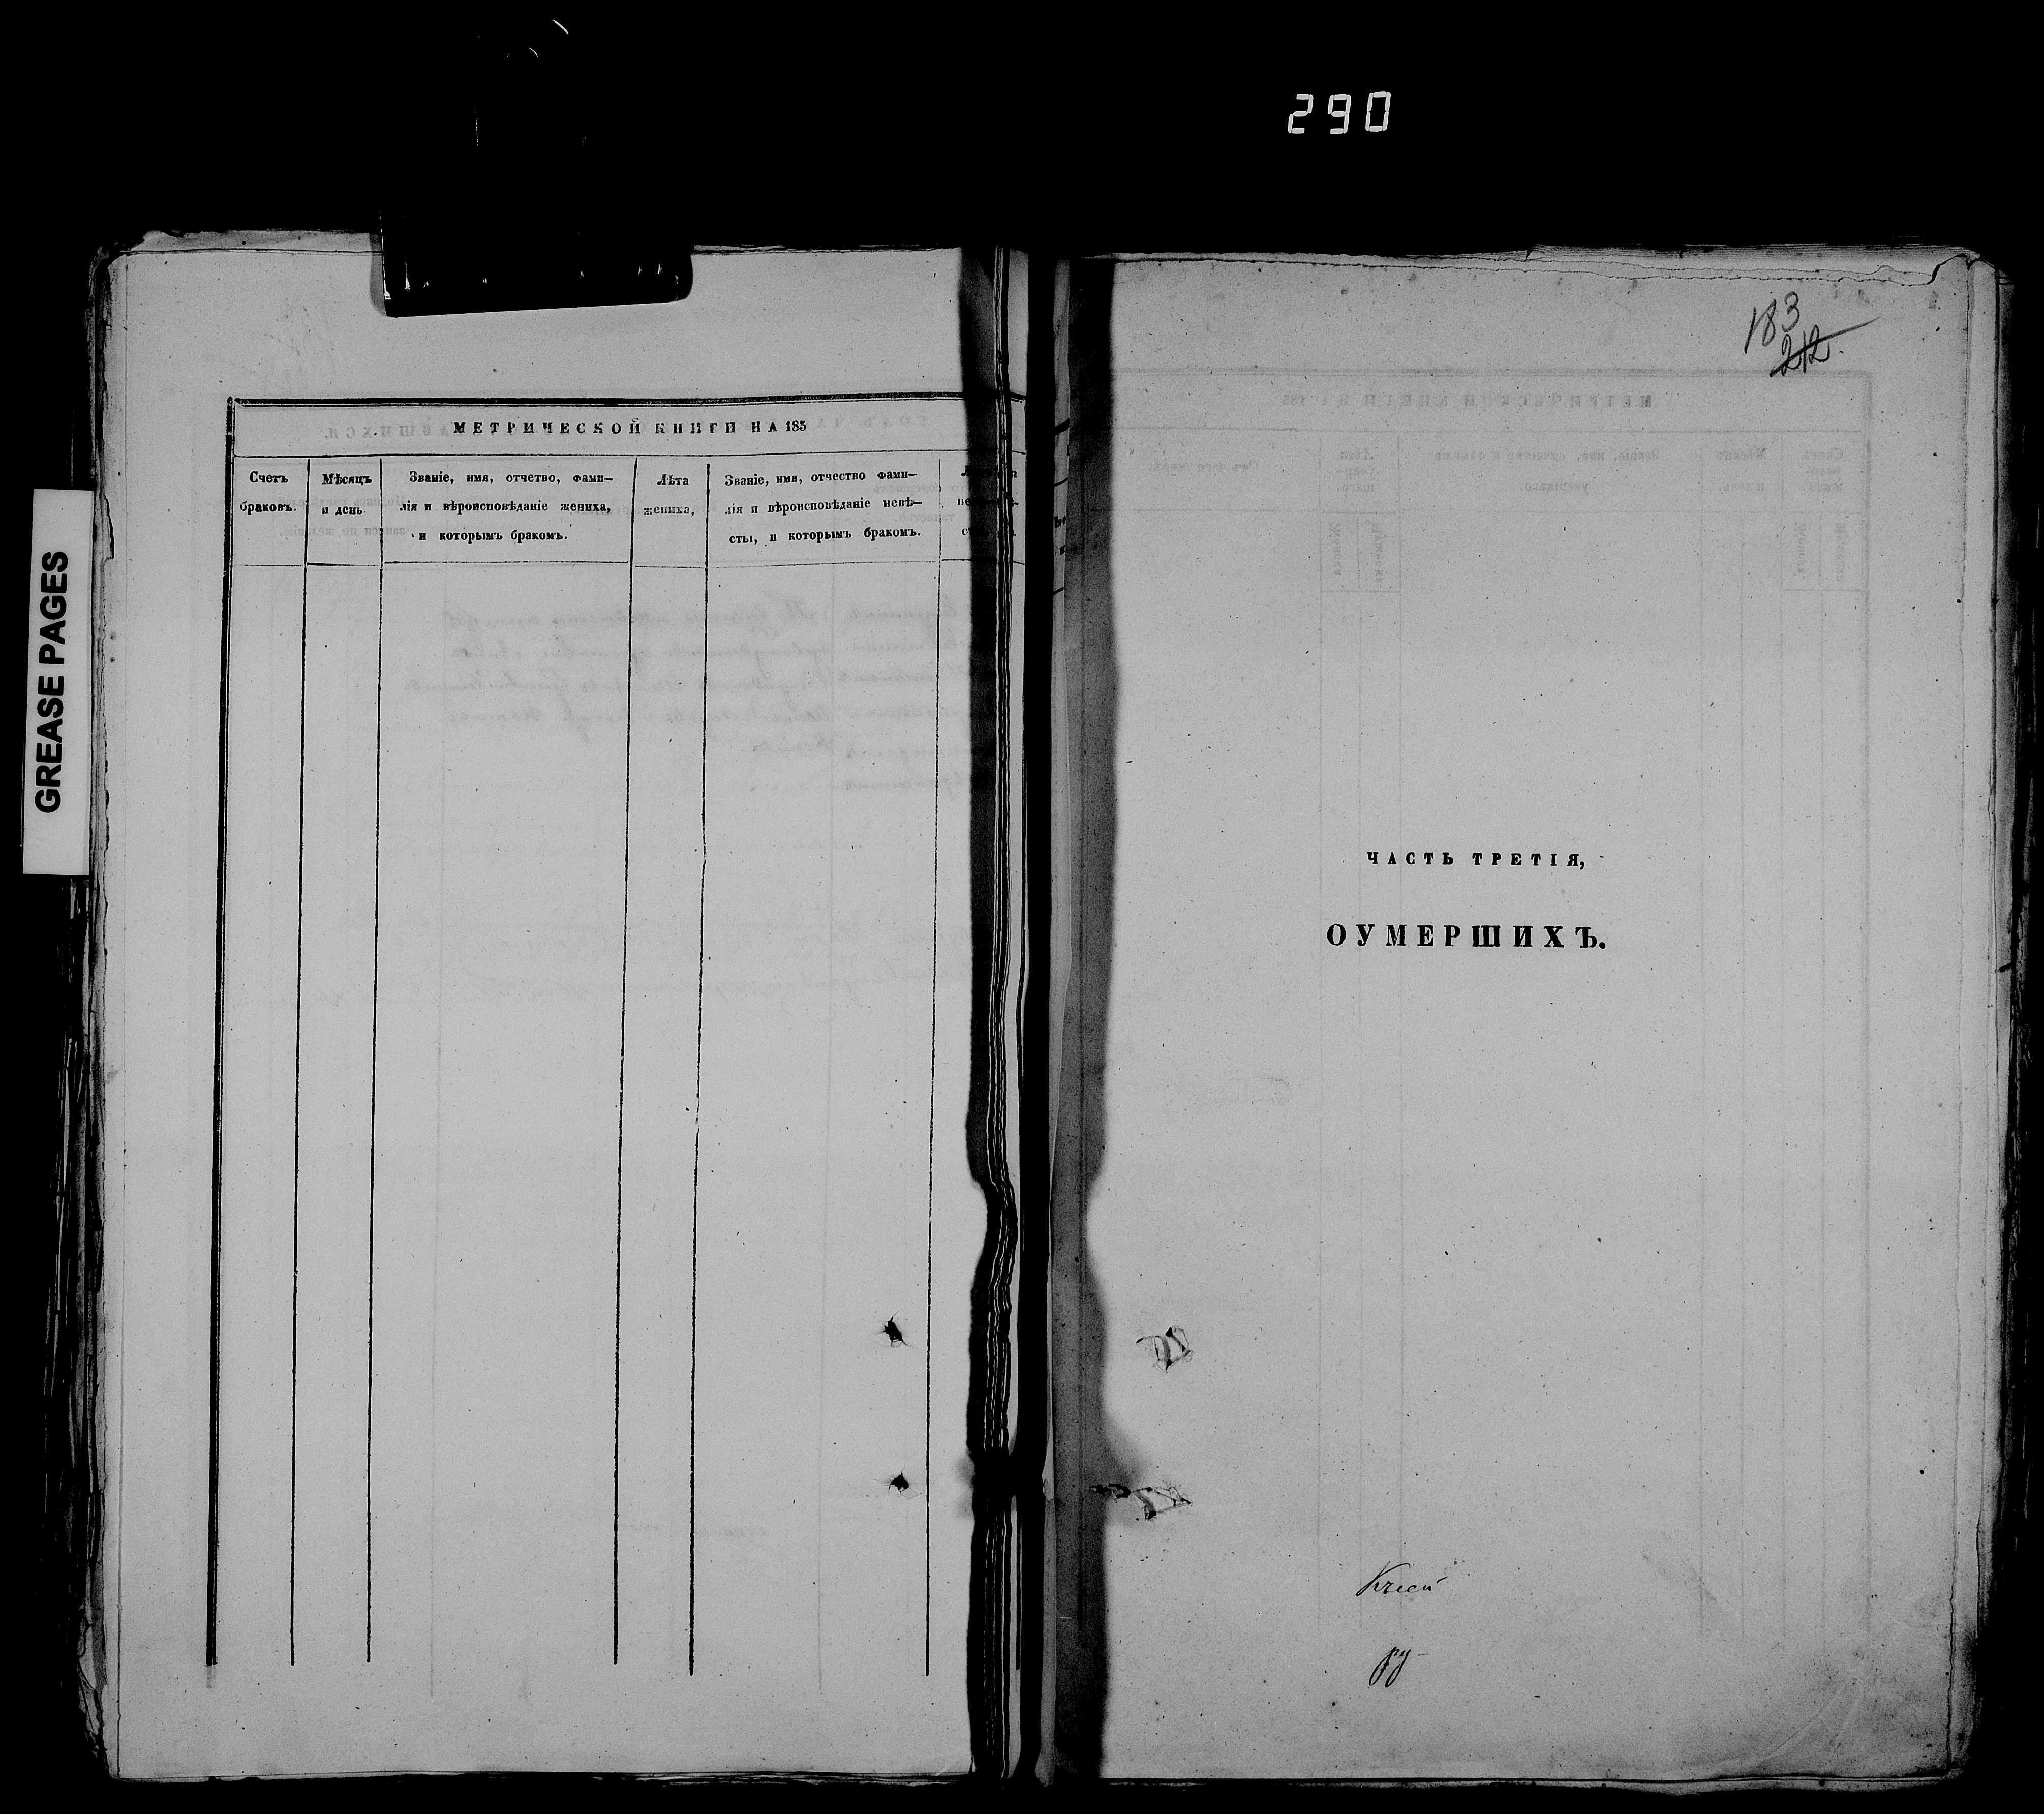 290
GREASE PAGES
МЕТРИЧЕСКОЙ КНИГИ НА 185
Счетъ браковъ.
Мѣсяцъ и день.
Званіе, имя, отчетво, фами-
лія и вѣроисповѣданіе жениха,
и которымъ бракомъ.
Лѣта жениха,
Званіе, имя, отчество фами-
лія и вѣроисповѣданіе невѣ-
сты, и которымъ бракомъ.
183
212.
ЧАСТЬ ТРЕТІЯ,
ОУМЕРШИХЪ.